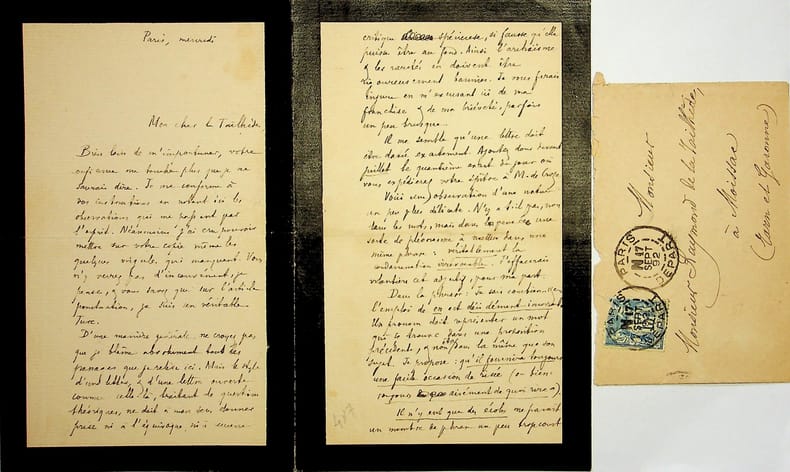 Paris, mercredi
Mon cher La Tailhède,
Bien loin de m'importuner, votre
confiance me touche plus que je ne
saurais dire. Je me conforme à
vos instructions en notant ici les
observations qui me passent par
l'esprit. Néanmoins j'ai cru pouvoir
mettre sur votre copie même les
quelques virgules qui manquent. Vous
n'y verrez pas d'inconvénient, je
pense, & vous savez que sur l'article
ponctuation, je suis un véritable
Turc.
D'une manière générale, ne croyez pas
que je blâme absolument tous les
passages que je relève ici. Mais le style
d'une lettre, & d'une lettre ouverte
comme celle-là, traitant de questions
théoriques, ne doit à mon sens donner
prise ni à l'équivoque, ni à aucune
critique spécieuse, si fausse qu'elle
puisse être au fond. Ainsi l'archaïsme
& les raretés en doivent être
rigoureusement bannies. Je vous ferais
injure en m'excusant ici de ma
franchise & de ma brièveté, parfois
un peu brusque.
Il me semble qu'une lettre doit
être datée exactement. Ajoutez donc devant
juillet le quantième exact du jour où
vous expédierez votre épître à M.
Voici une observation d'une nature
un peu plus délicate. N'y a-t-il pas, non
dans les mots, mais dans une
sorte de pléonasme à mettre dans une
même phrase : véritablement la
condamnation irrévocable. J'effacerais
volontiers cet adjectif, pour ma part.
Dans la phrase : Je sais combien
l'emploi de en est décidément incorrect.
Un pronom doit représenter un mot
qui se trouve dans une proposition
précédente, & non dans la même que son
sujet. Je propose : qu'il fournira toujours
une facile occasion de risée (ou bien :
toujours aisément de quoi rire à).
Il n'y eut que des écoles me paraît
un membre de phrase un peu trop court
417
Monsieur
Monsieur Raymond de la Tailhède,
à Moissac
(Tarn et Garonne)
PARIS
17
SEPT
92
DEPART